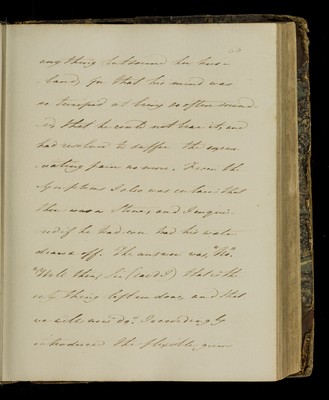 any thing but sound her hus-
band, for that his mind was
so
that he could not bear it, and
had resolved to suffer the excru-
ciating pain no more. From the
Symptoms I also was certain that
there was a Stone, and I enqui-
red if he had ever had his water
drawn off. The answer was, "No".
"Well then, Sir (said I) that is the
only thing left undone, and that
we will now do". I accordingly
introduced the flexible gum